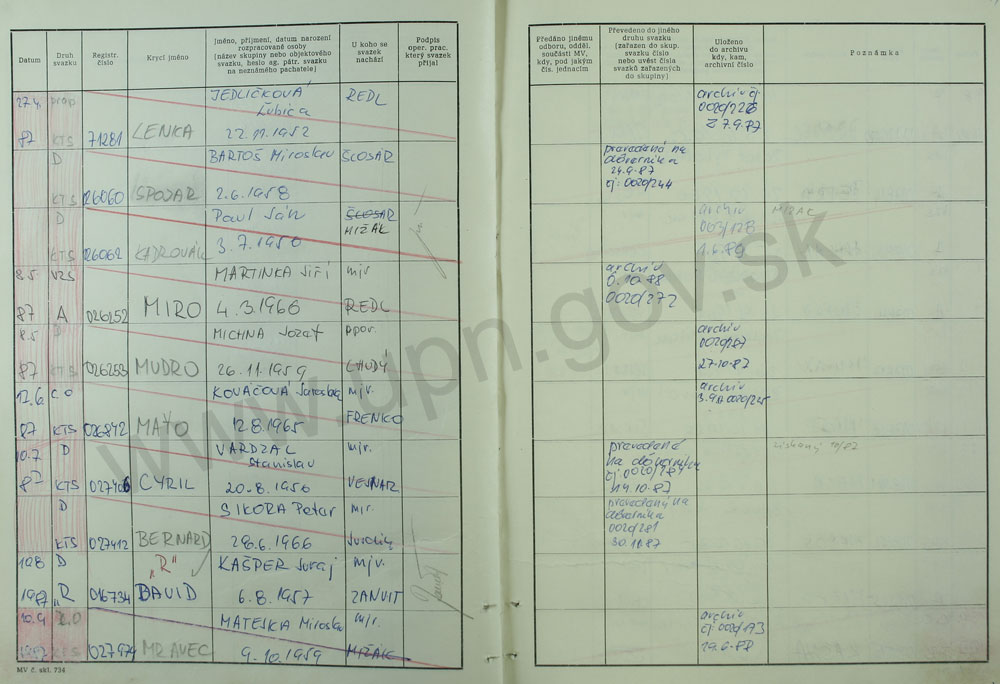 Datum
Druh svazku
Registr. číslo
Krycí jméno
Jméno, příjmení, datum narození
rozpracované osoby
(název skupiny nebo objektového
svazku, heslo ag. pátr. svazku
na neznámého pachatele)
U koho se
svazek
nachází
Podpis
oper. prac.
který svazek
přijal
Předáno jinému
odboru, odděl.
součásti MV,
kdy, pod jakým
čís. jednacím
Převedeno do jiného
druhu svazku
(zařazen do skup.
svazku číslo
nebo uvést čísla
svazků zařazených
do skupiny)
Uloženo
do archivu
kdy, kam,
archivní číslo
Poznámka
27.4. prop JEDLIČKOVÁ REDL archiv čj
Ľubica 0020/226
87 KTS 71281 LENKA 22.11.1952 Z 7.9.87
D BARTOŠ Miroslav ŠLOSÁR prevedená na
dôverníka
24.9.87
KTS 026060 SPOJAR 2.6.1958 čj: 0020/244
D Paul Ján ŠLOSÁR archiv MIŽÁK
MIŽÁK 003/128
KTS 026062 3.7.1950 1.6.89
8.5 VZS MARTINKA Jiří mjr archiv
6.10.88
87 A 026252 MIRO 4.3.1966 REDL 0020/272
8.5 D MICHNA Jozef ppor. archiv
0020/267
87 KTS 026253 MUDRO 26.11.1959 CHUDÝ 27.10.87
12.6 C.O KOVÁČOVÁ mjr. archiv
87 KTS 026842 MAŤO 12.8.1965 FRENKO
10.7 D VARDZAL mjr. prevedená
Stanislav na dôverníka
87 KTS CYRIL 20.8.1956 VEJNAR 14.10.87
získaný 10/87
D SIKORA Peter mjr. prevedený na
dôverníka
0020/281
KTS 027412 BERNARD 28.6.1966 30.10.87
10.8 D „R" KAŠPER Juraj mjr.
1987 „R 016734 DAVID 6.8.1957 ZANVIT
10.9 C.O MATEJKA Miroslav mjr. archiv
čj. 0020/193
1987 KTS 027974 MRAVEC 9.10.1959 MIŽÁK 29.6.88
MV č. skl. 734
www.upn.gov.sk